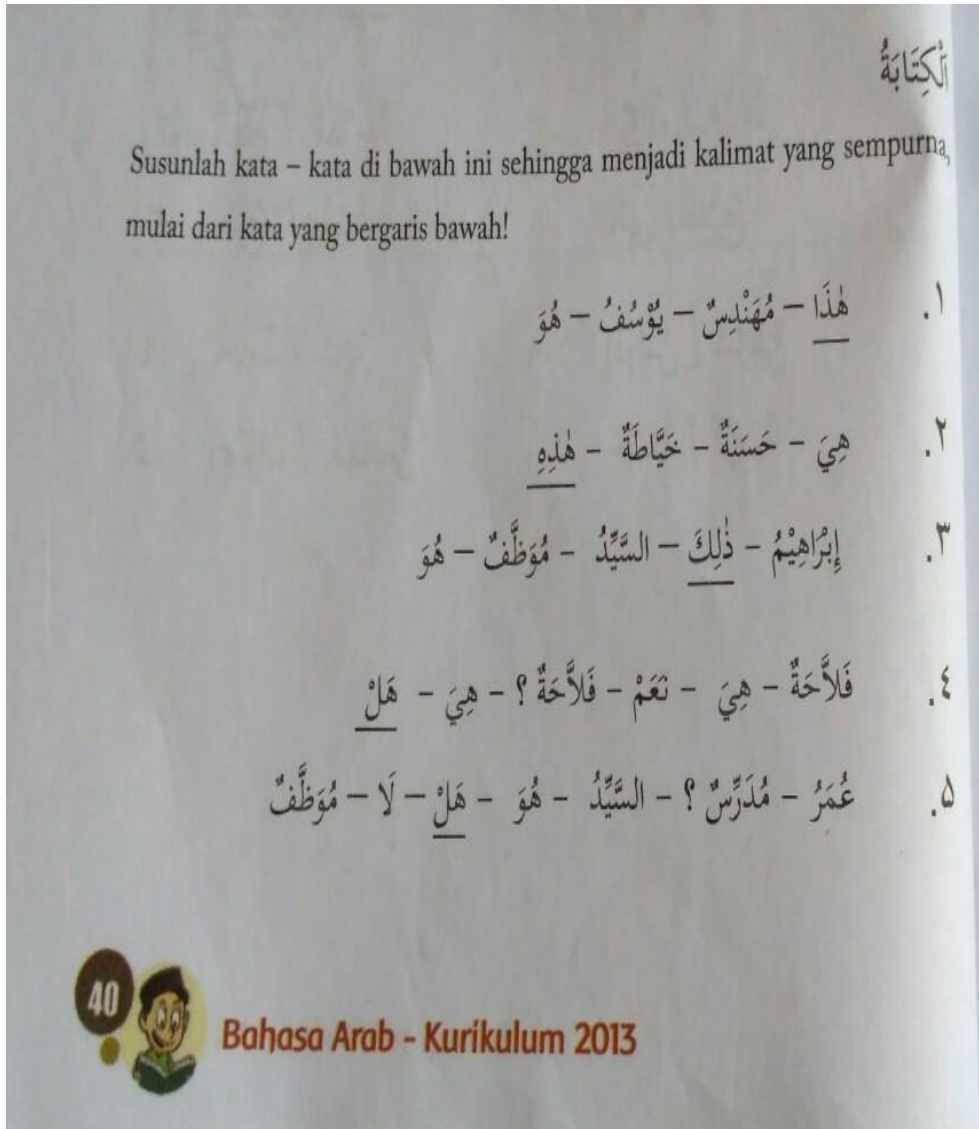 اَلْكِتَابَةُ
Susunlah kata – kata di bawah ini sehingga menjadi kalimat yang sempurna,
mulai dari kata yang bergaris bawah!
١. هٰذَا – مُهَنْدِسٌ – يُوْسُفُ – هُوَ
٢. هِيَ – حَسَنَةٌ – خَيَّاطَةٌ – هٰذِهِ
٣. إِبْرَاهِيْمُ – ذٰلِكَ – السَّيِّدُ – مُوَظَّفٌ – هُوَ
٤. فَلاَّحَةٌ – هِيَ – نَعَمْ – فَلاَّحَةٌ ؟ – هِيَ – هَلْ
۵. عُمَرُ – مُدَرِّسٌ ؟ – السَّيِّدُ – هُوَ – هَلْ – لَا – مُوَظَّفٌ
40
Bahasa Arab - Kurikulum 2013